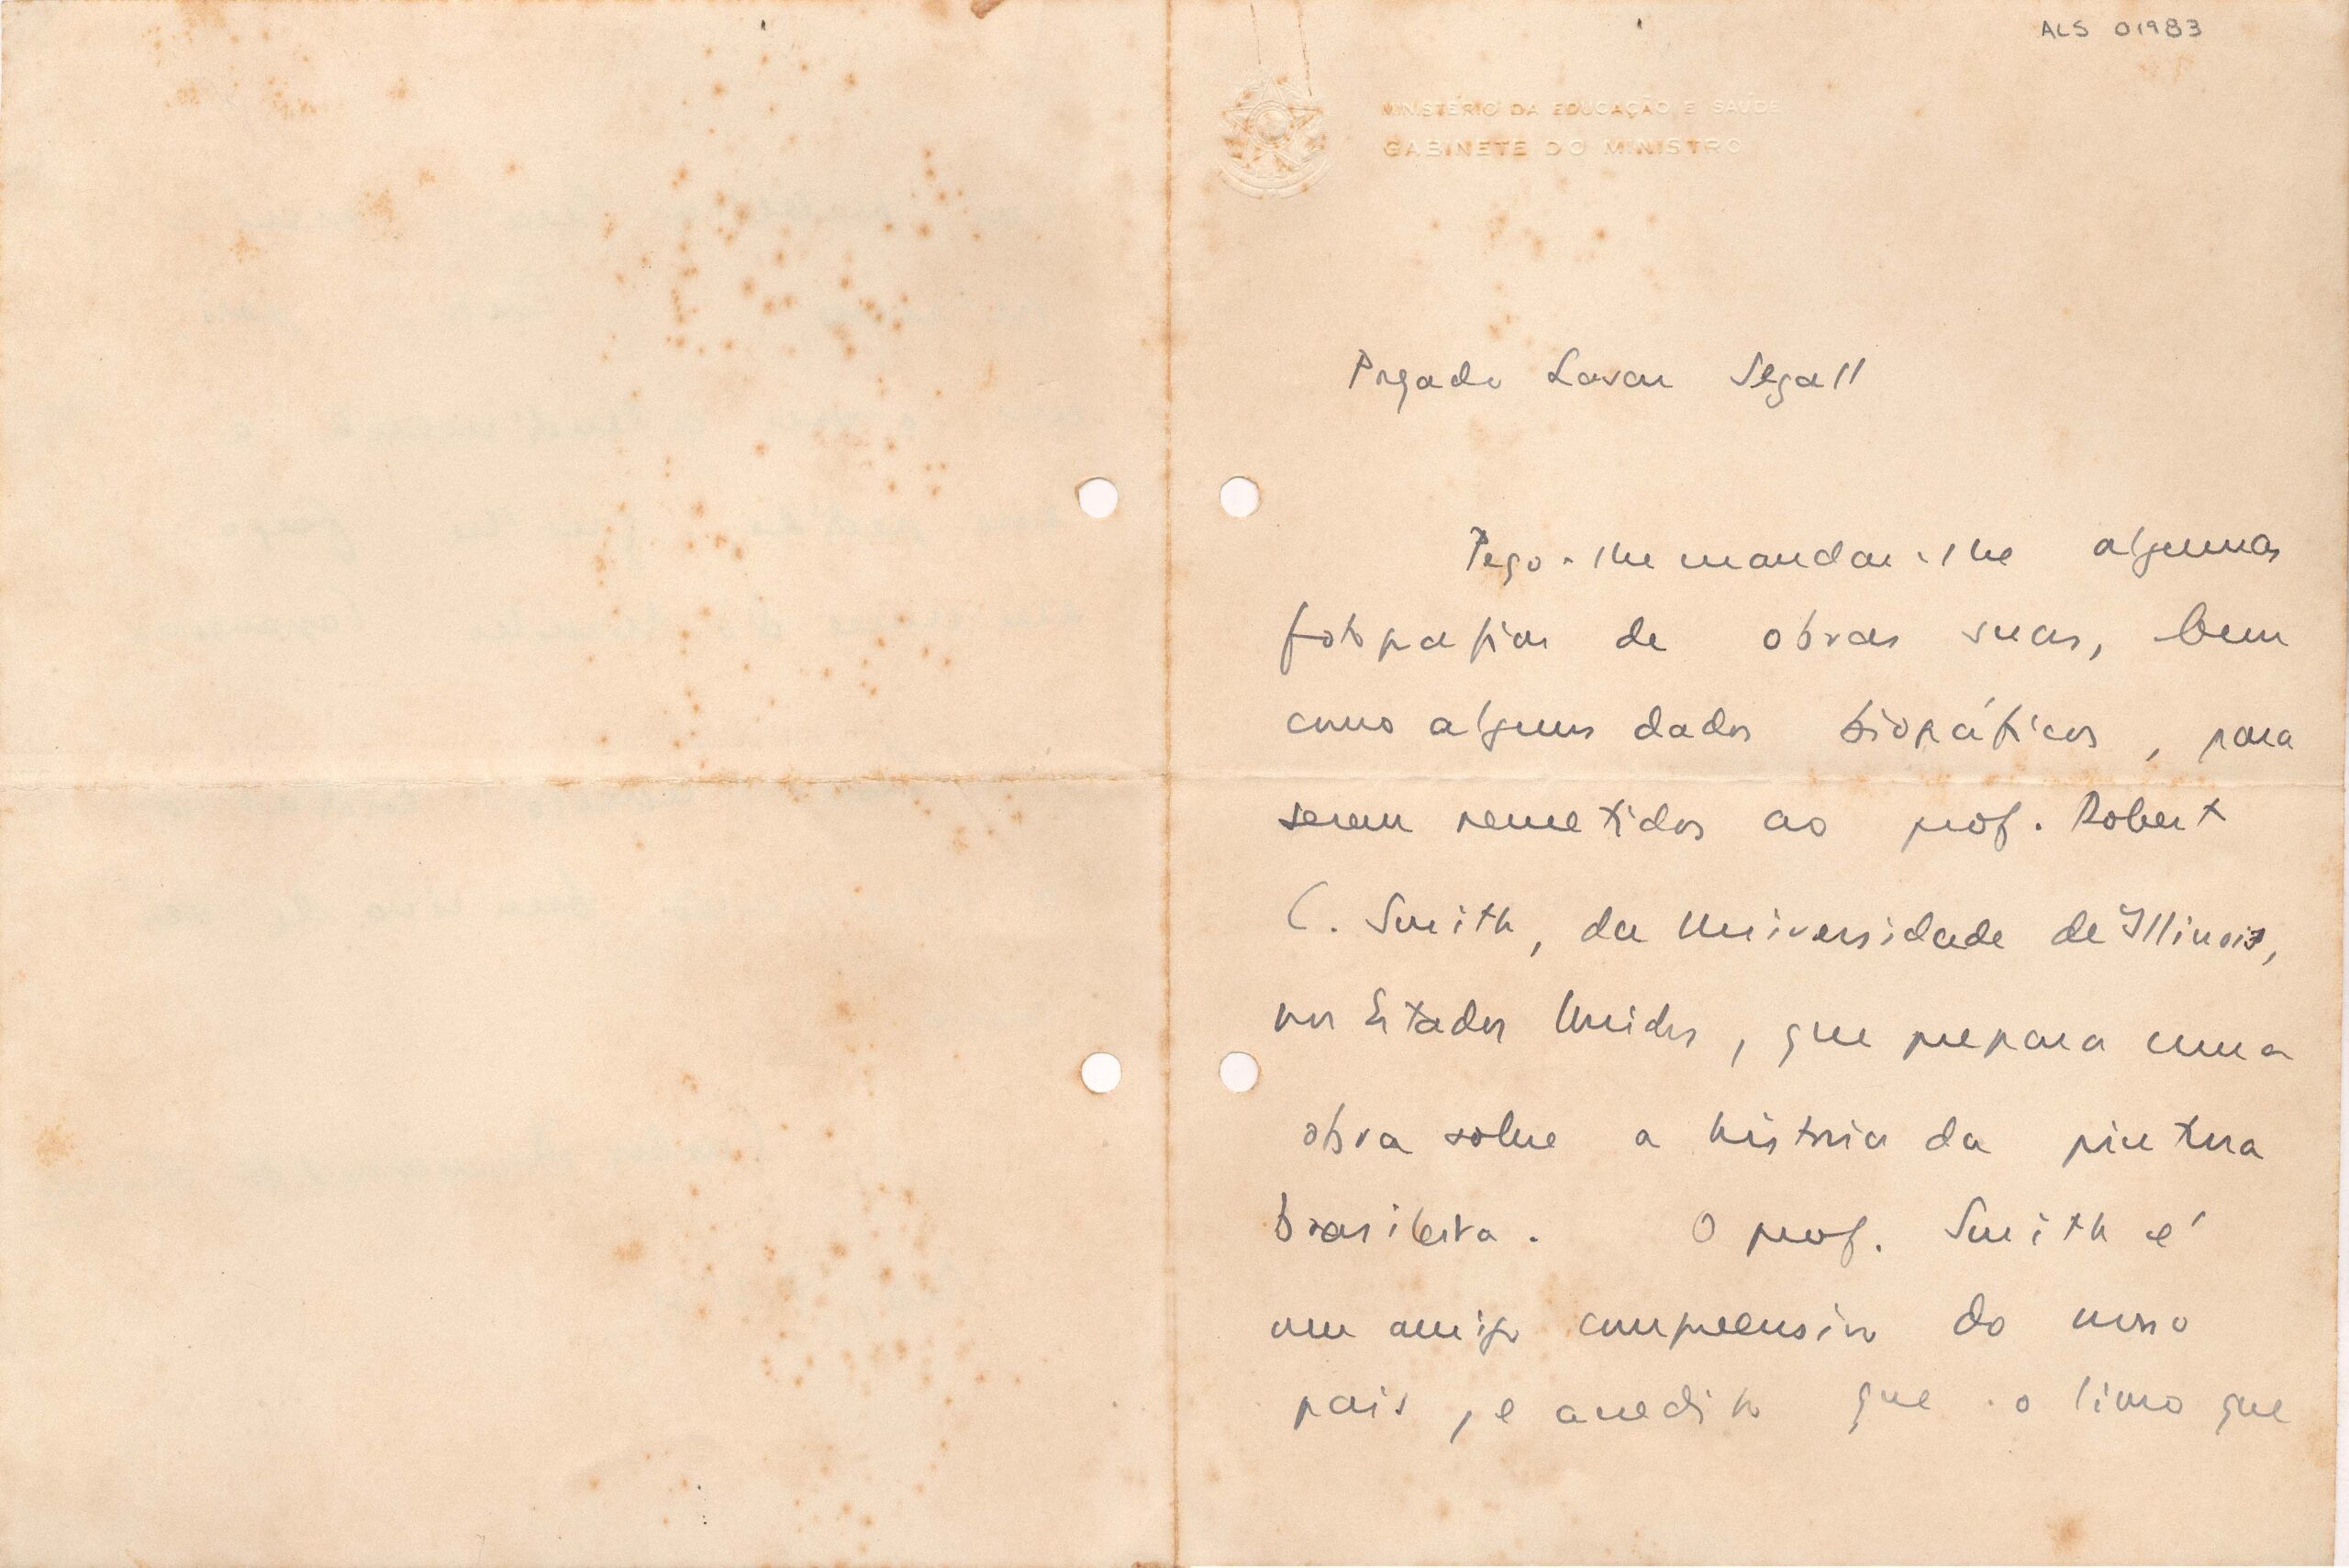 ALS 01983
MINISTÉRIO DA EDUCAÇÃO E SAUDE
GABINETE DO MINISTRO
Prezado Lasar Segall
Peço-lhe mandar-me algumas
fotografias de obras suas, bem
como alguns dados biográficos, para
serem remetidos ao prof. Robert
C. Smith, da Universidade de Illinois,
nos Estados Unidos, que prepara uma
obra sobre a história da pintura
brasileira. O prof. Smith é
um amigo compreensivo do nosso
pais, e acredito que o livro que